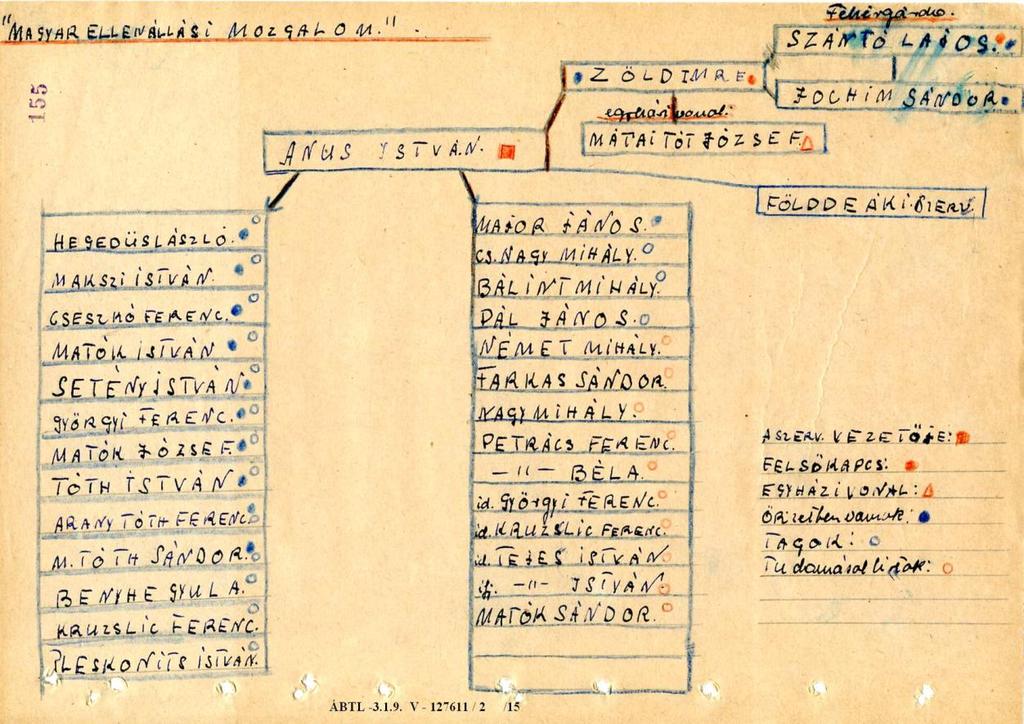 "MAGYAR ELLENÁLLÁSI MOZGALOM."
155
Fehérgárda.
SZÁNTÓ LAJOS.
ZÖLD IMRE.
JOCHIM SÁNDOR.
egyházi vonal:
MÁTAI TÓT JÓZSEF.
ANUS ISTVÁN.
FÖLDDEÁKI SZERV.
HEGEDÜS LÁSZLÓ.
MAKSZI ISTVÁN.
CSESZKÓ FERENC.
MATÓK ISTVÁN
SETÉNYI ISTVÁN
GYÖRGYI FERENC.
MATÓK JÓZSEF.
TÓTH ISTVÁN
ARANY TÓTH FERENC.
M. TÓTH SÁNDOR.
BENYHE GYULA.
KRUZSLIC FERENC.
PLESKONITS ISTVÁN.
MAJOR JÁNOS.
CS. NAGY MIHÁLY.
BÁLINT MIHÁLY.
PÁL JÁNOS.
NÉMET MIHÁLY.
FARKAS SÁNDOR.
NAGY MIHÁLY.
PETRÁCS FERENC.
-"- BÉLA.
id. GYÖRGYI FERENC.
id. KRUZSLIC FERENC.
id. TEJES ISTVÁN
ifj. -"- ISTVÁN.
MATÓK SÁNDOR.
A SZERV. VEZETŐJE:
FELSŐKAPCS:
EGYHÁZI VONAL:
Őrizetben vannak:
TAGOK:
ÁBTL -3.1.9. V - 127611 / 2 /15